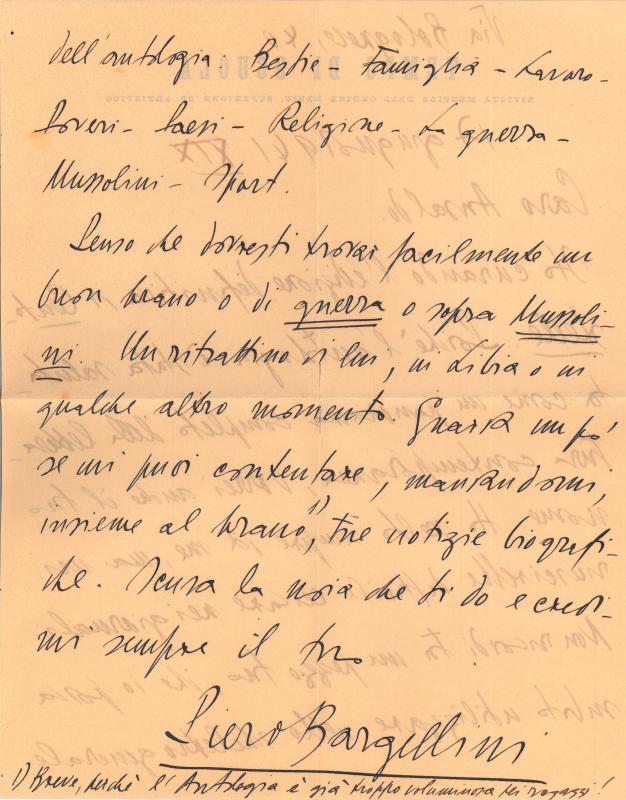 dell'antologia. Bestie - Famiglia - Lavoro -
Poveri - Paesi - Religione - La guerra -
Mussolini - Sport.
Penso che dovresti trovar facilmente un
buon brano o di guerra o sopra Mussoli-
ni. Un ritrattino di lui, in Libia o in
qualche altro momento. Guarda un po'
se mi puoi contentare, mandandomi,
insieme al brano 1), tue notizie biografi-
che. Scusa la noia che ti do e credi-
mi sempre il tuo
Piero Bargellini
1) Breve, perchè l'Antologia è già troppo voluminosa pei ragazzi!